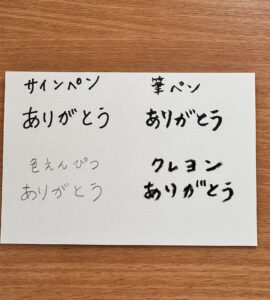 サインペン
ありがとう
筆ペン
ありがとう
色えんぴつ
ありがとう
クレヨン
ありがとう